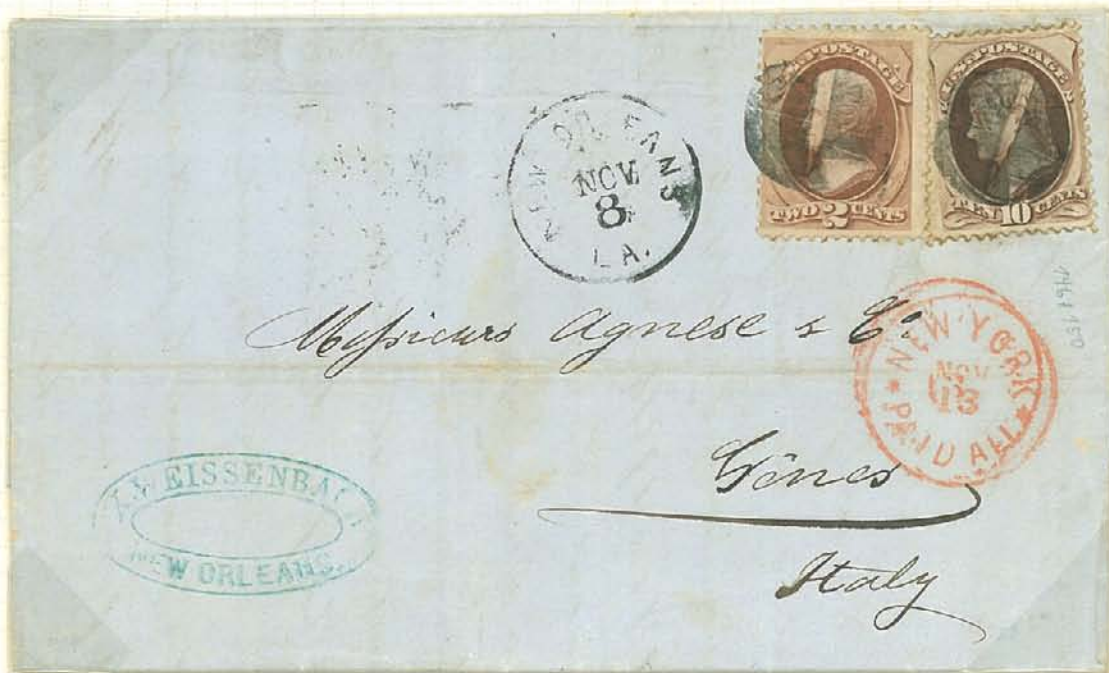 U.S. POSTAGE
TWO 2 CENTS
U.S. POSTAGE
TEN 10 CENTS
NEW ORLEANS
NOV
8
LA.
Messieurs Agnese & Co.
NEW YORK
NOV
13
PAID ALL
Gênes
Italy
NEW ORLEANS.